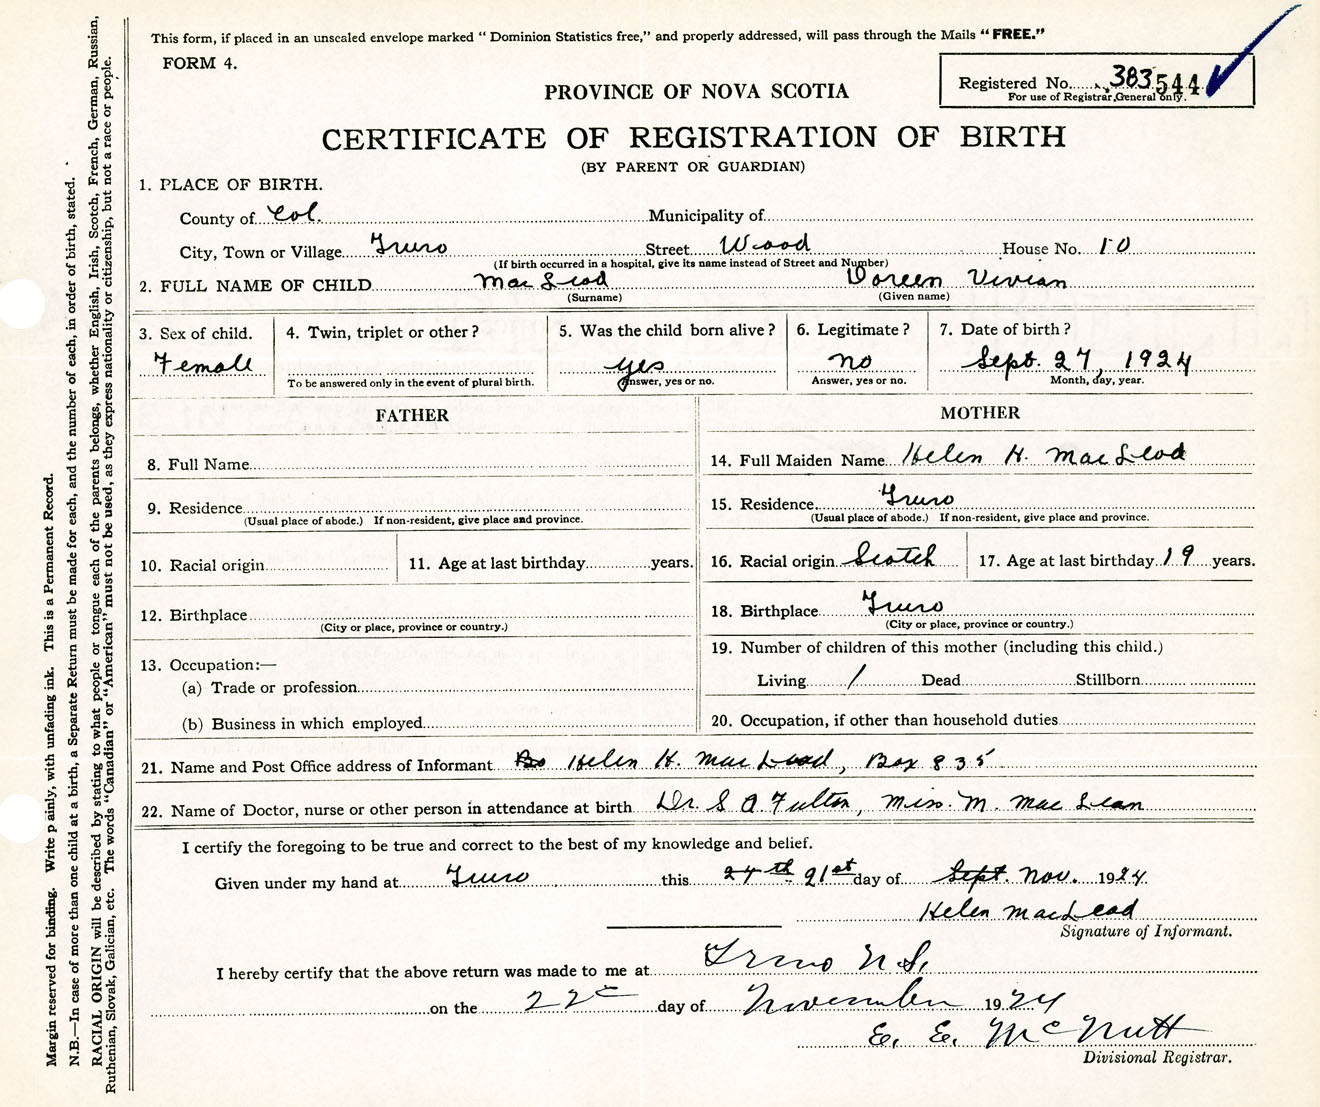 This form, if placed in an unscaled envelope marked “ Dominion Statistics free,” and properly addressed, will pass through the Mails “ FREE.”
FORM 4.
Registered No. 383544
For use of Registrar General only.
PROVINCE OF NOVA SCOTIA
CERTIFICATE OF REGISTRATION OF BIRTH
(BY PARENT OR GUARDIAN)
1. PLACE OF BIRTH.
County of Col. Municipality of
City, Town or Village Truro Street Wood House No. 10
(If birth occurred in a hospital, give its name instead of Street and Number)
2. FULL NAME OF CHILD MacLeod Doreen Vivian
(Surname) (Given name)
3. Sex of child. 4. Twin, triplet or other ? 5. Was the child born alive ? 6. Legitimate ? 7. Date of birth ?
Female yes no Sept. 27, 1924
To be answered only in the event of plural birth. Answer, yes or no. Answer, yes or no. Month, day, year.
FATHER MOTHER
8. Full Name 14. Full Maiden Name Helen H. MacLeod
9. Residence 15. Residence Truro
(Usual place of abode.) If non-resident, give place and province. (Usual place of abode.) If non-resident, give place and province.
10. Racial origin 11. Age at last birthday years. 16. Racial origin Scotch 17. Age at last birthday 19 years.
12. Birthplace 18. Birthplace Truro
(City or place, province or country.) (City or place, province or country.)
13. Occupation:— 19. Number of children of this mother (including this child.)
(a) Trade or profession Living 1 Dead Stillborn
(b) Business in which employed 20. Occupation, if other than household duties
21. Name and Post Office address of Informant Bo Helen H. MacLeod, Box 835
22. Name of Doctor, nurse or other person in attendance at birth Dr. S A Fulton, Miss. M. MacLean
I certify the foregoing to be true and correct to the best of my knowledge and belief.
Given under my hand at Truro this 27th 21st day of Sept. Nov. 1924.
Helen MacLeod
Signature of Informant.
I hereby certify that the above return was made to me at Truro N.S.
on the 22 day of November 1924
E. E. McNutt
Divisional Registrar.
Margin reserved for binding. Write plainly, with unfading ink. This is a Permanent Record.
N.B.—In case of more than one child at a birth, a Separate Return must be made for each, and the number of each, in order of birth, stated.
RACIAL ORIGIN will be described by stating to what people or tongue each of the parents belongs, whether English, Irish, Scotch, French, German, Russian,
Ruthenian, Slovak, Galician, etc. The words “Canadian” or “American” must not be used, as they express nationality or citizenship, but not a race or people.